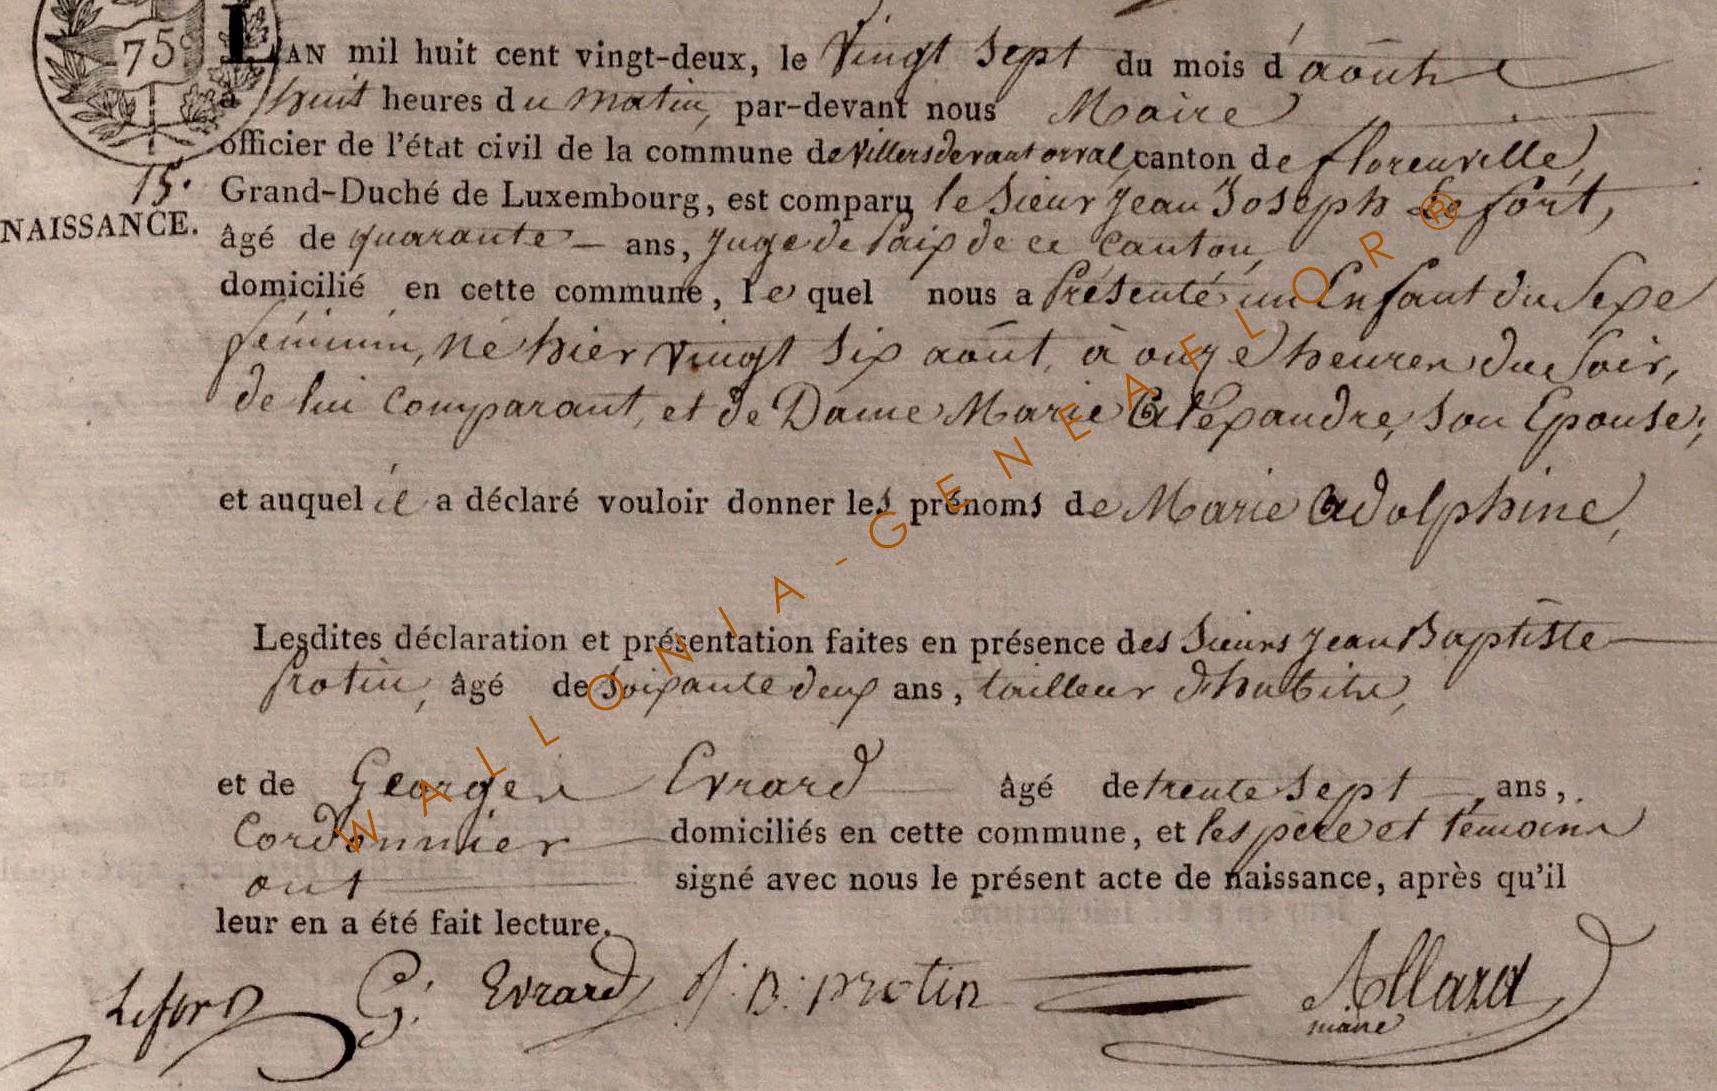 75
L'AN mil huit cent vingt-deux, le Vingt Sept du mois d'août
à huit heures du matin, par-devant nous Maire
officier de l'état civil de la commune de Villers devant orval, canton de florenville,
15.
Grand-Duché de Luxembourg, est comparu le Sieur Jean Joseph Lefort,
NAISSANCE.
âgé de quarante ans, Juge de Paix de ce Canton,
domicilié en cette commune, lequel nous a Présenté un Enfant du Sexe
féminin, né hier vingt Six août, à onze heures du Soir,
de lui Comparant, et de Dame Marie Alexandre, Son Epouse;
et auquel il a déclaré vouloir donner les prénoms de Marie Adolphine,
Lesdites déclaration et présentation faites en présence des Sieurs Jean Baptiste
Protin, âgé de Soixante deux ans, tailleur d'habits,
et de Georges Evrard âgé de trente Sept ans,
Cordonnier domiciliés en cette commune, et les père et témoins
ont signé avec nous le présent acte de naissance, après qu'il
leur en a été fait lecture.
Lefort G: Evrard J: B: protin Allard
maire
WALLONIA-GENEAFLOR®